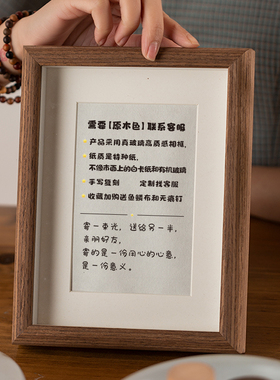 需要[原木色]联系客服
产品采用真玻璃高质感相框,
纸质是特种纸,
不像市面上的白卡纸和有机玻璃
手写篆刻 定制找客服
收藏加购送鱼鳞布和无痕钉
寄一束光, 送给另一半,
亲朋好友,
寄的是一份用心的心意,
是一份意义。